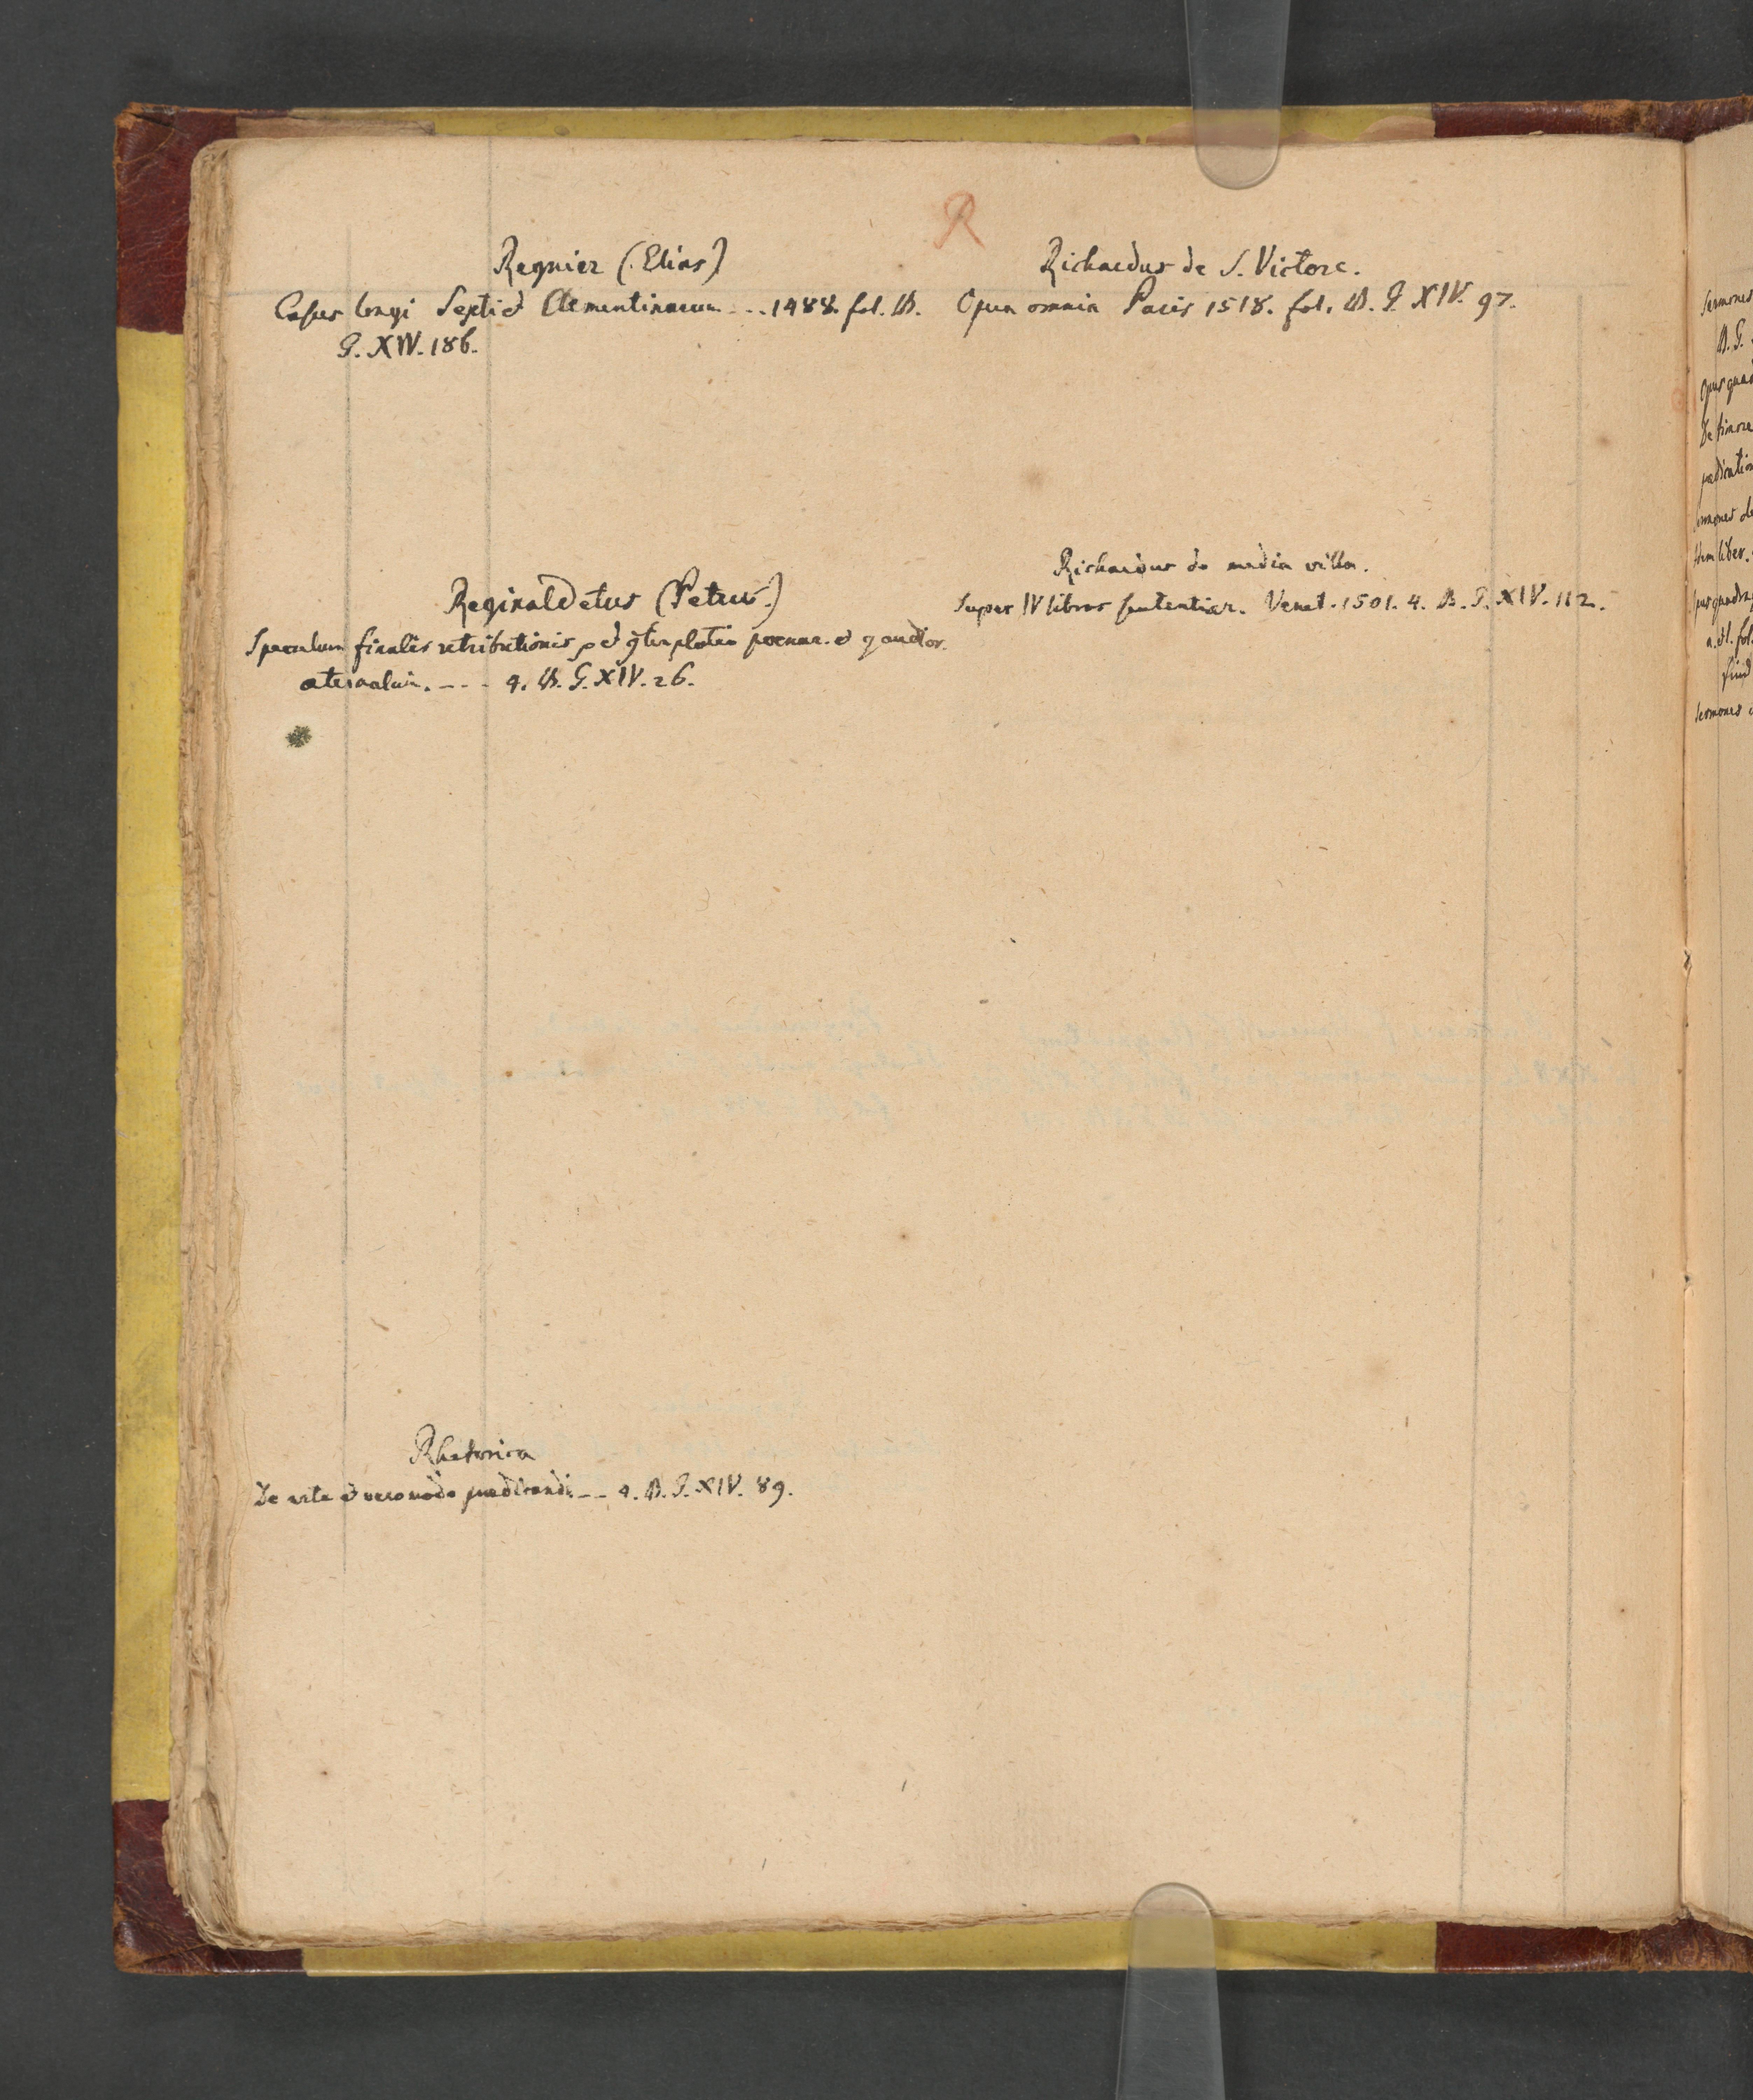 R
Regnier (Elias)
Casus longi Sexti et Clementinarum - . . 1488. fol. B.
G. XIV. 186.
Reginaldetus (Petrus.)
Speculum finalis retributionis poenar. et gaudior.
aternalium. - - - 4. B. G. XIV. 26.
Rhetorica
De arte et vero modo praedicandi - - 4. B. G. XIV. 89.
Richardus de S. Victore.
Opera omnia Paris 1518. fol. B. G. XIV. 97.
Richardus de media villa.
Super IV libros sententiar. Venet. 1501. 4. B. G. XIV. 112.
Sermones
B. G.
Opus
De timore
Item liber.
fol.
Sermones